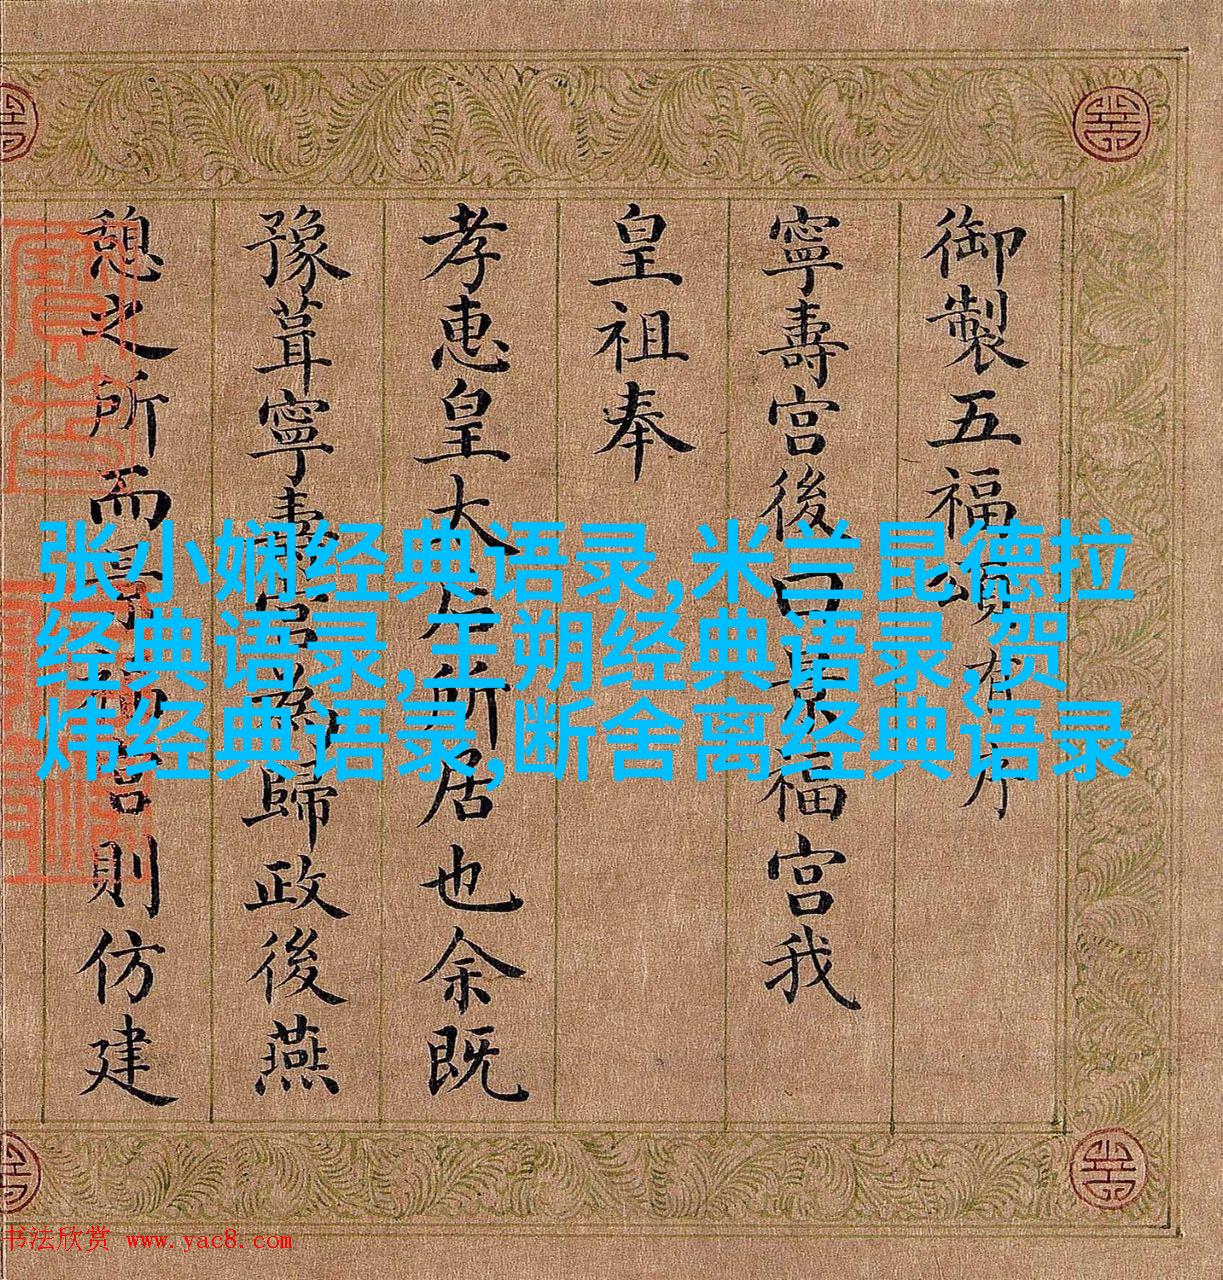 御製五福頌有序
寧壽宮後曰景福宮我
皇祖奉
孝惠皇太后所居也余既
豫葺寧壽宮為歸政後燕
憩之所而景福宮則仿建
张小娴经典语录,米兰昆德拉
经典语录,王朔经典语录,贺
炜经典语录,断舍离经典语录
书法欣赏 www.yac8.com